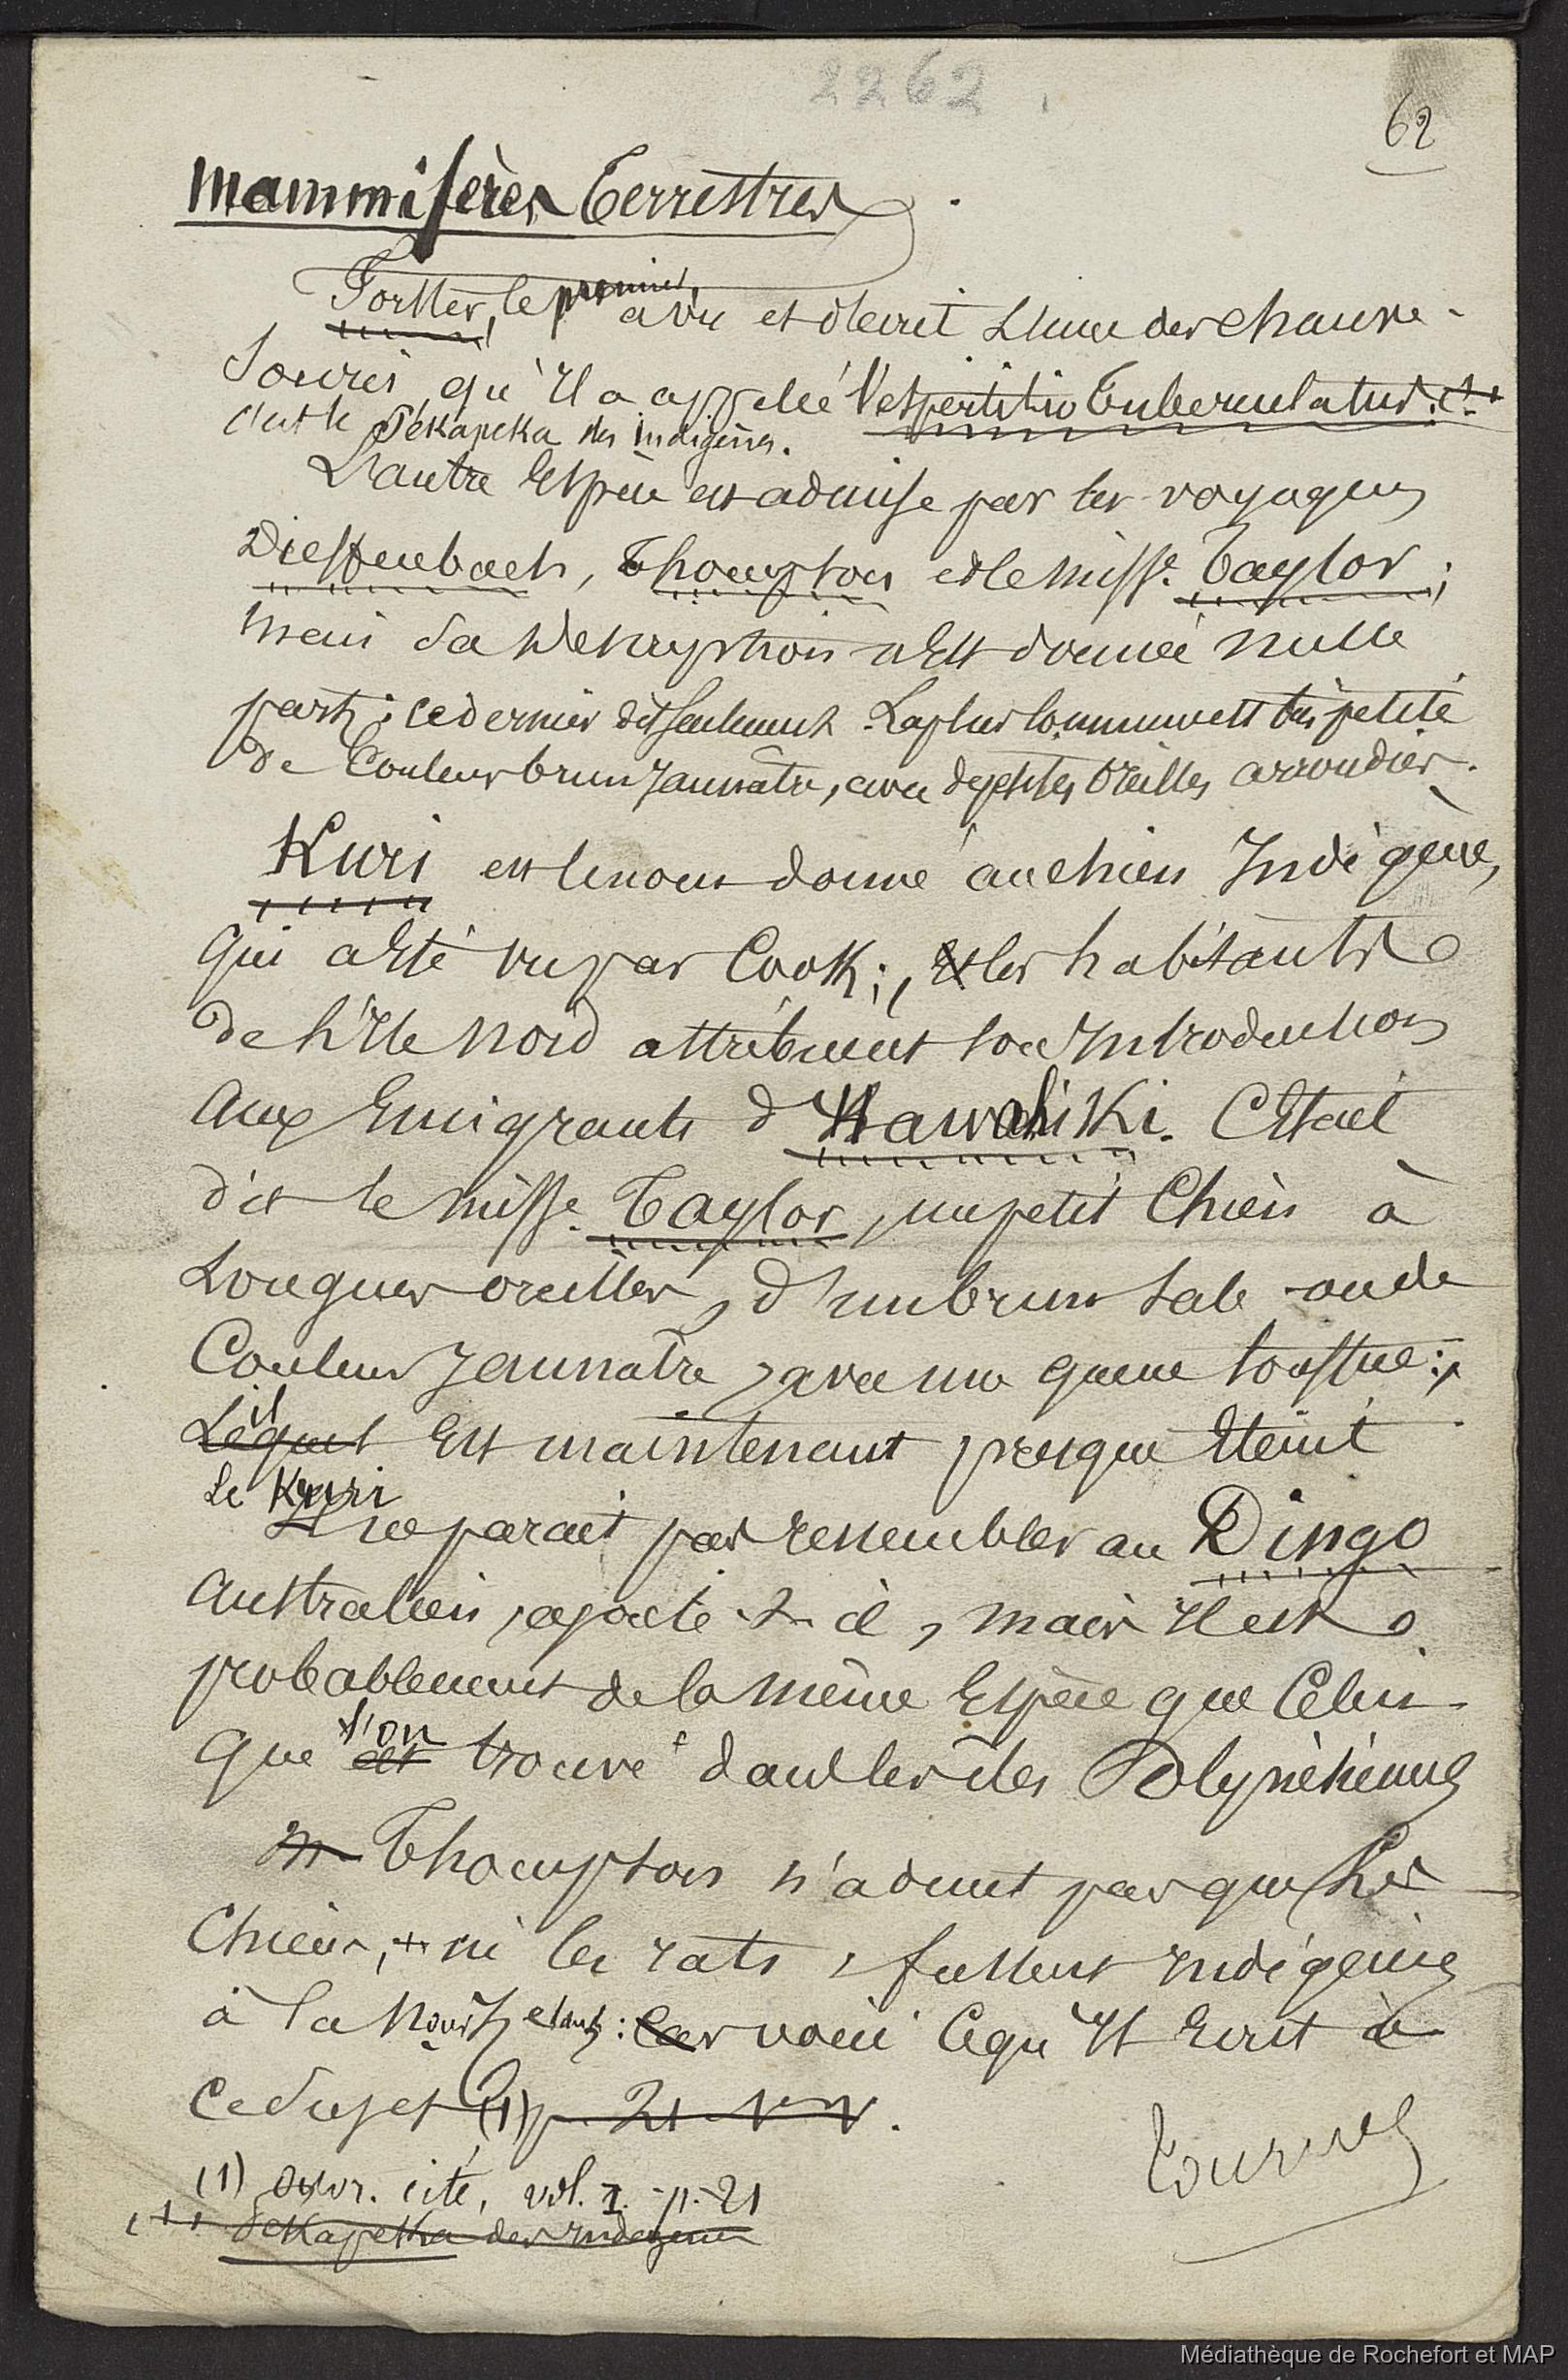 2262
62
Mammifères Terrestres.
Forster, le premier, a vu et décrit l'une des chauve-
souris, qu'il a appelée Vespertilio Tuberculatus.
c'est le Pékapeka des indigènes.
L'autre Espèce est admise par les voyageurs
Dieffenbach, Thompson et le Miss.e Taylor ;
mais sa Description n'Est donnée nulle
part ; ce dernier dit seulement La plus commune est très petite
de Couleur brun jaunâtre, avec de petites Oreilles arrondies.
Kuri est le nom donné au chien Indigène,
qui a Eté vu par Cook ; les habitants
de l'Ile Nord attribuent son Introduction
aux Emigrants d'Hawahiki. C'Etait
dit le Miss.e Taylor, un petit Chien à
Longues oreilles, d'un brun sale ou de
Couleur jaunâtre, avec une queue touffue ;
Lequel il Est maintenant presque Eteint
Le Kuri
Il ne parait pas ressembler au Dingo
australien, ajoute-t-il, mais il est
probablement de la même Espèce que Celui
que l'on trouve dans les îles Polynésiennes
M. Thompson n'admet pas que les
Chiens, ni les rats, fussent indigènes
à la Nouv. Zélande : car voici ce qu'Il Ecrit à
ce sujet (1) p. 21.
tournez
(1) Ouvr. cité, vol. 1. p. 21
Pékapeka des indigènes
Médiathèque de Rochefort et MAP